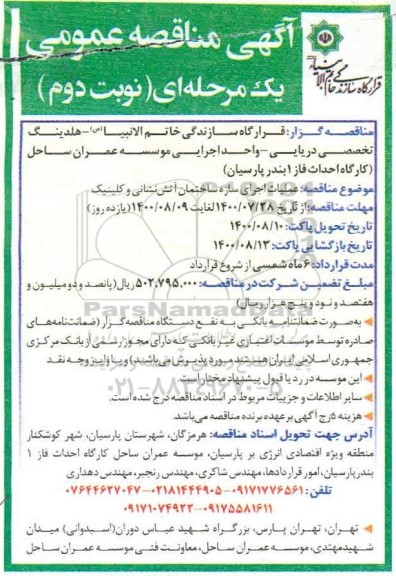 قرارگاه سازندگی خاتم الانبیاء
آگهی مناقصه عمومی
یک مرحله‌ای (نوبت دوم)
مناقصه گزار: قرارگاه سازندگی خاتم الانبیا(ص)-هلدینگ
تخصصی دریایی-واحد اجرایی موسسه عمران ساحل
(کارگاه احداث فاز ۱ بندر پارسیان)
موضوع مناقصه: عملیات اجرای سازه ساختمان آتش‌نشانی و کلینیک
مهلت مناقصه: از تاریخ ۱۴۰۰/۰۷/۲۸ لغایت ۱۴۰۰/۰۸/۰۹ (یازده روز)
تاریخ تحویل پاکت: ۱۴۰۰/۰۸/۱۰
تاریخ بازگشایی پاکت: ۱۴۰۰/۰۸/۱۳
مدت قرارداد: ۶ ماه شمسی از شروع قرارداد
مبلغ تضمین شرکت در مناقصه: ۵۰۲,۷۹۵,۰۰۰ ریال (پانصد و دو میلیون و
هفتصد و نود و پنج هزار ریال)
به صورت ضمانتنامه بانکی به نفع دستگاه مناقصه گزار (ضمانت‌نامه‌های
صادره توسط موسسات اعتباری غیر بانکی که دارای مجوز رسمی از بانک مرکزی
جمهوری اسلامی ایران هستند مورد پذیرش می‌باشد) و یا واریز وجه نقد
این موسسه در رد یا قبول پیشنهاد مختار است.
سایر اطلاعات و جزییات مربوط در اسناد مناقصه درج شده است.
هزینه درج آگهی بر عهده برنده مناقصه می‌باشد.
آدرس جهت تحویل اسناد مناقصه: هرمزگان، شهرستان پارسیان، شهر کوشکنار
منطقه ویژه اقتصادی انرژی بر پارسیان، موسسه عمران ساحل کارگاه احداث فاز ۱
بندر پارسیان، امور قراردادها، مهندس شاکری، مهندس رنجبر، مهندس دهداری
تلفن: ۰۹۱۷۱۷۷۶۵۶۱-۰۲۱۸۱۴۴۴۹۰۵-۰۷۶۴۴۶۲۷۰۴۷
۰۹۱۷۵۵۸۱۶۱۱-۰۹۱۷۱۰۷۴۹۲۲
تهران، تهران پارس، بزرگراه شهید عباس دوران (اسبدوانی) میدان
شهید مهتدی، موسسه عمران ساحل، معاونت فنی موسسه عمران ساحل
ParsNamadData
۰۲۱-۸۸۳۴۹۶۷۰